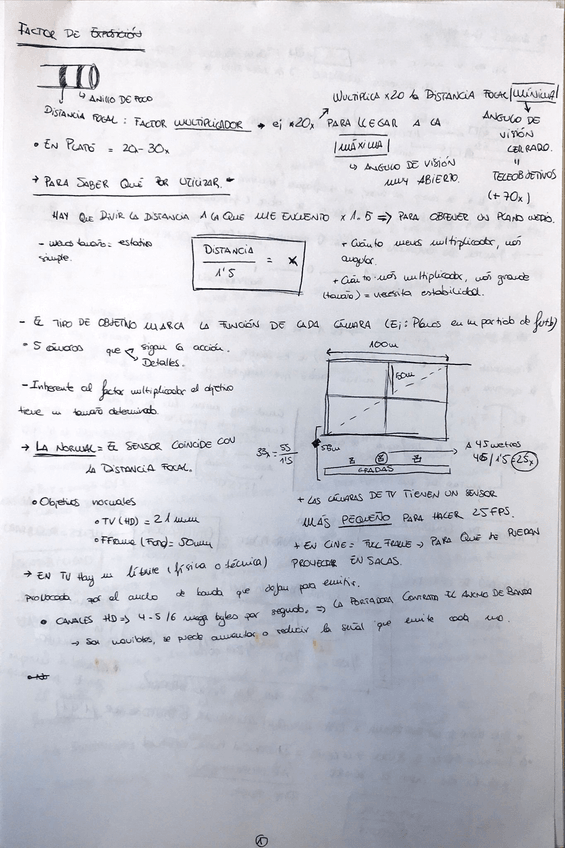 FACTOR DE EXPOSICIÓN
↳ ANILLO DE FOCO
DISTANCIA FOCAL: FACTOR MULTIPLICADOR → ej x20x
MULTIPLICA x20 la DISTANCIA FOCAL MÍNIMA
PARA LLEGAR A LA
MÁXIMA
↳ ANGULO DE VISIÓN
MUY ABIERTO.
ANGULO DE
VISIÓN
CERRADO.
"
TELEOBJETIVOS
(+ 70x)
• EN PLATÓ = 20-30x
→ PARA SABER QUÉ UTILIZAR.
HAY QUE DIVIR LA DISTANCIA A LA QUE ME ENCUENTO x 1.5 => PARA OBTENER UN PLANO MEDIO.
- menos tamaño = estativo
simple.
DISTANCIA
1'5
= x
+ Cuánto menos multiplicador, más
angular.
+ Cuánto más multiplicador, más grande
(tamaño) = necesita estabilidad.
- EL TIPO DE OBJETIVO MARCA LA FUNCIÓN DE CADA CÁMARA (Ej: Planos en un partido de futb)
- 5 cámaras que
sigan la acción.
Detalles.
- Inherente al factor multiplicador el objetivo
tiene un tamaño determinado.
100m
60m
55m
33x = 55
1'5
GRADAS
A 45 metros
45/1'5 = 25x
→ LA NORMAL = EL SENSOR COINCIDE CON
LA DISTANCIA FOCAL.
• Objetivos normales
• TV (HD) = 21 mm
• FFrame (Foto) = 50mm
+ LAS CÁMARAS DE TV TIENEN UN SENSOR
MÁS PEQUEÑO PARA HACER 25 FPS.
+ EN CINE = FULL FRAME → PARA QUE SE PUEDAN
PROYECTAR EN SALAS.
→ EN TV Hay un límite (física o técnica)
provocada por el ancho de banda que dejan para emitir.
• CANALES HD => 4-5/6 mega bytes por segundo, => LA PORTADORA CONTRATA EL ANCHO DE BANDA
→ Son movibles, se puede aumentar o reducir la señal que emite cada uno.
1